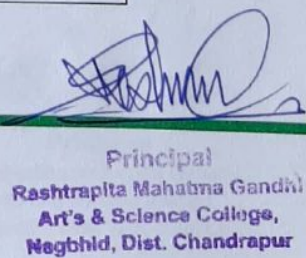 Principal
Rashtrapita Mahatma Gandhi
Art's & Science College,
Nagbhid, Dist. Chandrapur